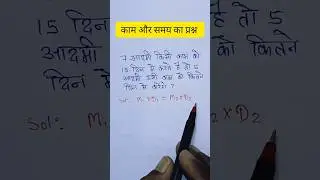 काम और समय का प्रश्न
15 दिन
आदमी
दिन में
7 आदमी किसी काम को
15 दिन में करते हैं तो 5
आदमी उसी काम को कितने
दिन में करेंगे ?
Sol: M₁ × D₁ = M₂ × D₂
Sol: M₁
× D₂